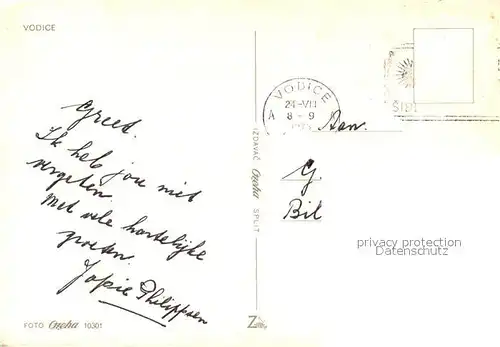 VODICE
Greet.
Ik heb jou niet
vergeten.
Met vele hartelijke
groeten.
Jopie Philippsen
FOTO Čačka 10301
IZDAVAČ Čačka SPLIT
VODICE
24-VIII
A 8-9
Aan.
G.
Bil
privacy protection
Datenschutz